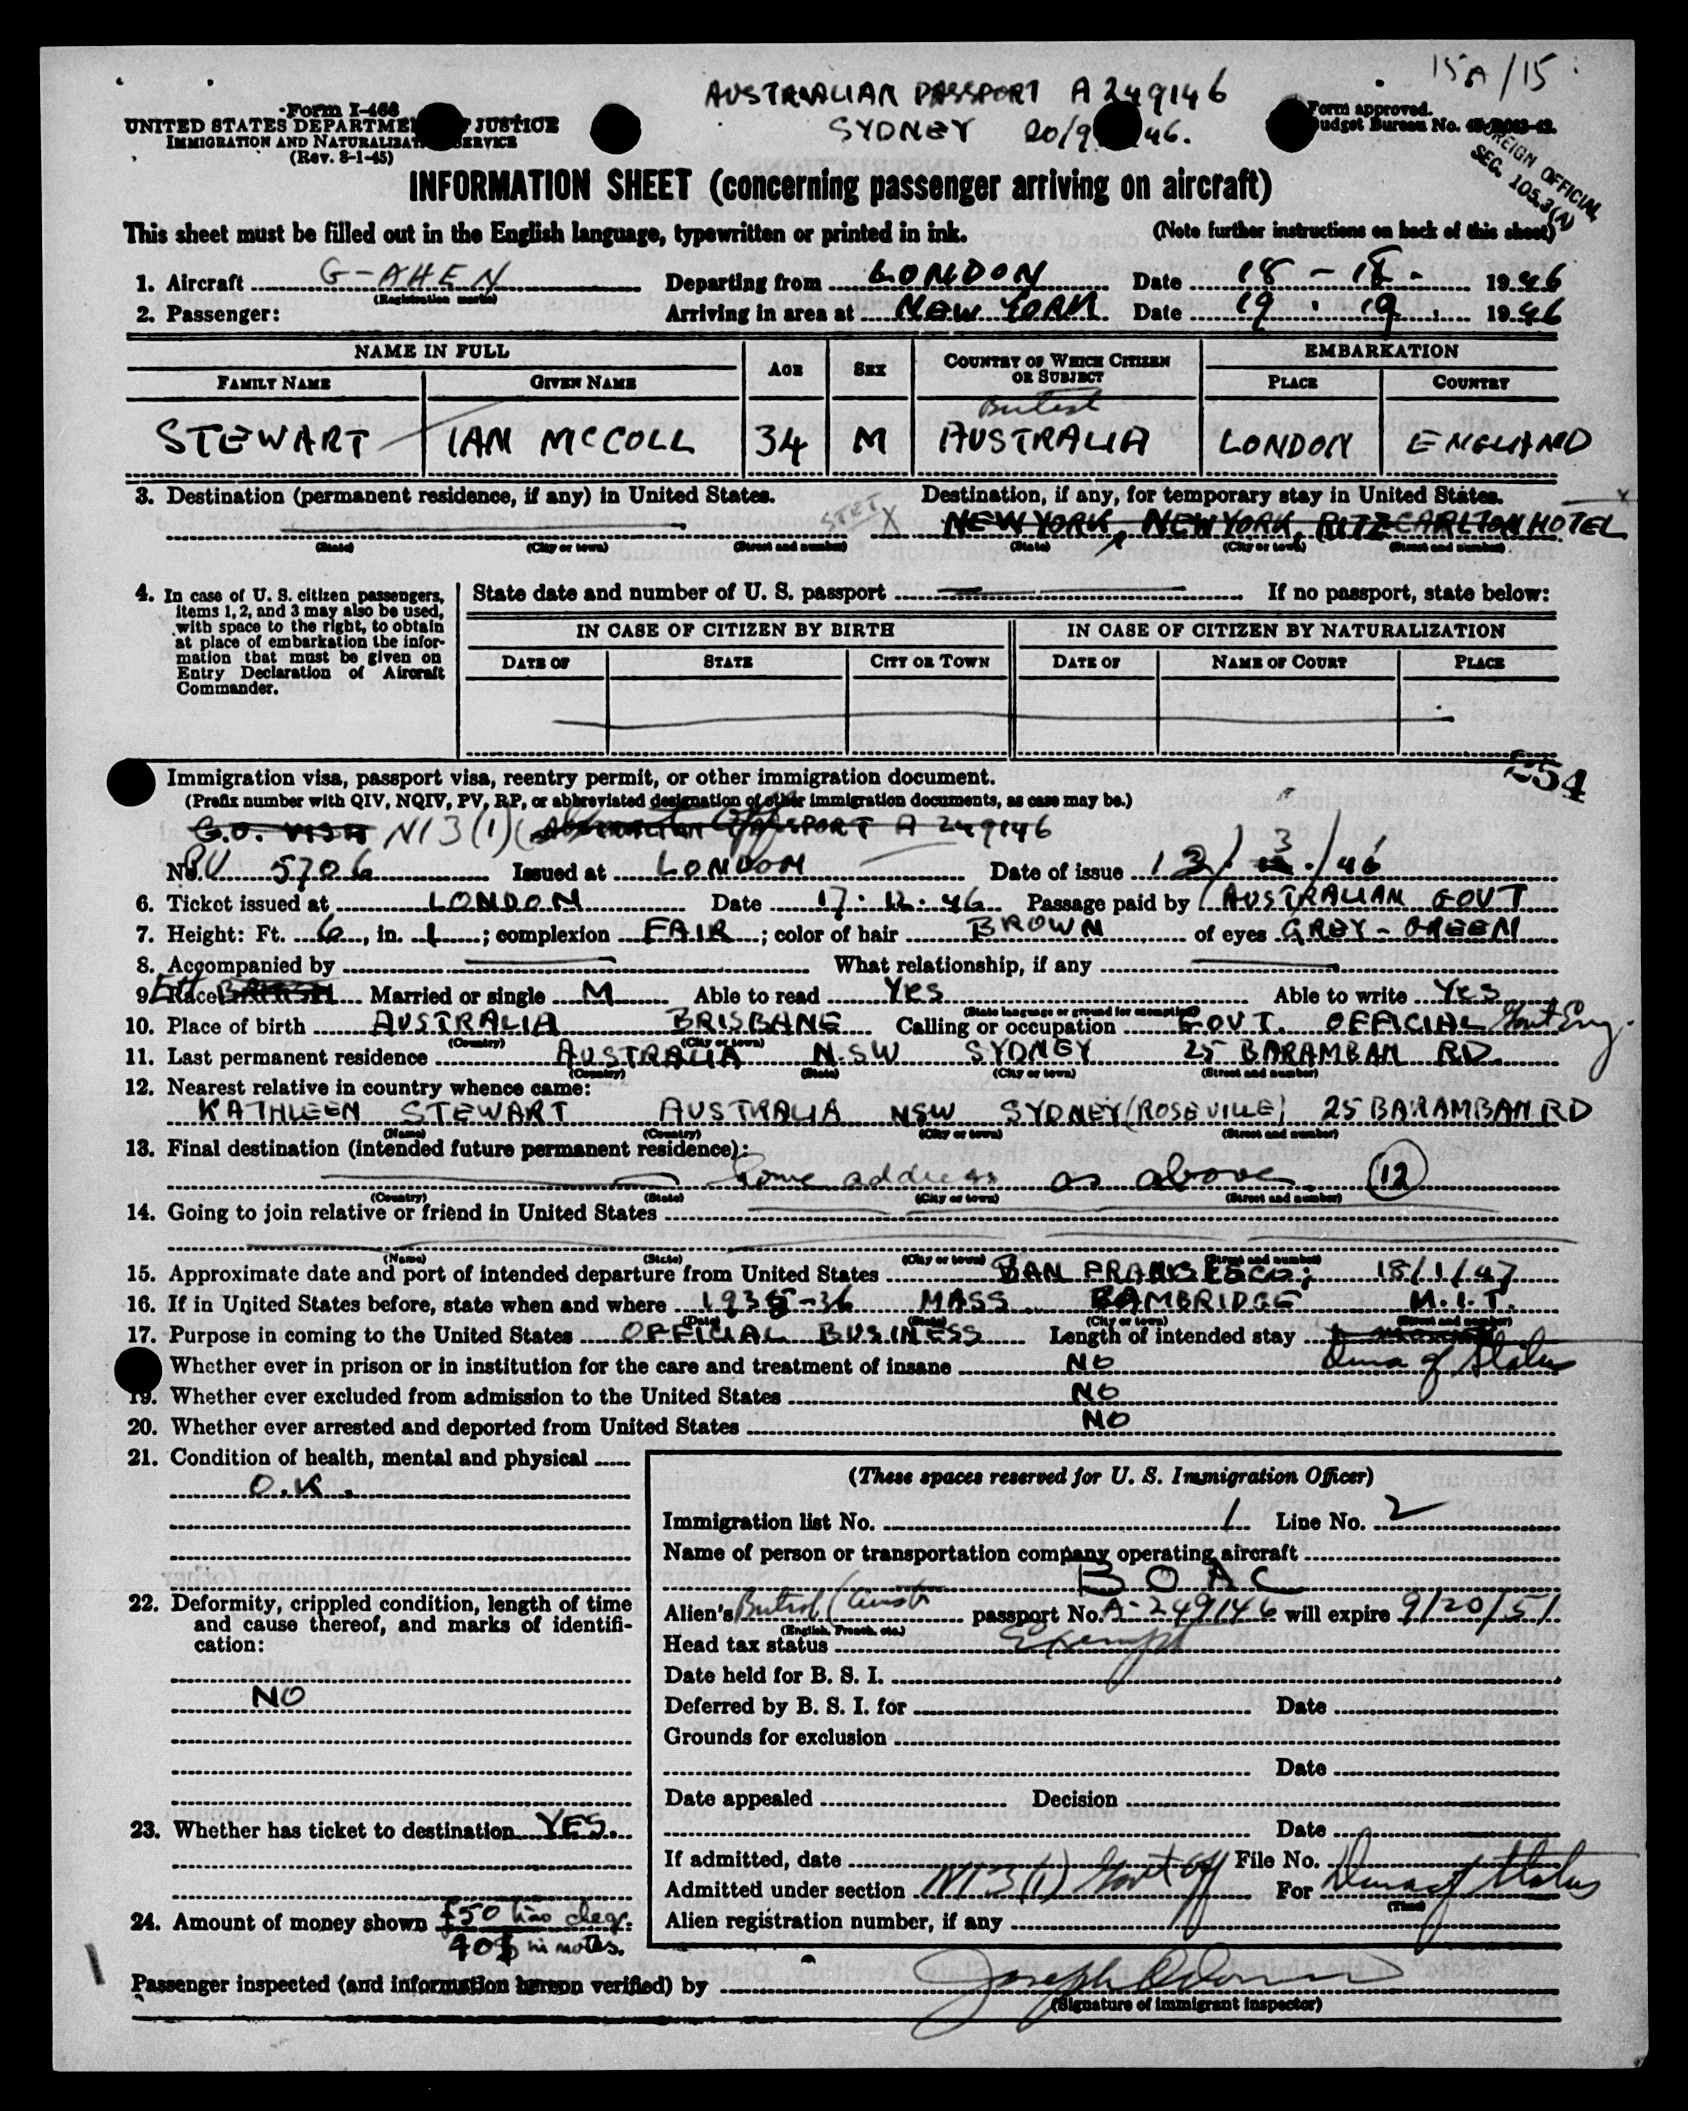 15A/15
AUSTRALIAN PASSPORT A 249146
SYDNEY 20/9 46.
Form I-466
UNITED STATES DEPARTMENT OF JUSTICE
IMMIGRATION AND NATURALIZATION SERVICE
(Rev. 8-1-45)
Form approved.
Budget Bureau No.
FOREIGN OFFICIAL
SEC. 105.3(A)
INFORMATION SHEET (concerning passenger arriving on aircraft)
This sheet must be filled out in the English language, typewritten or printed in ink. (Note further instructions on back of this sheet)
1. Aircraft G-AHEN Departing from LONDON Date 18 - 1946
(Registration marks)
2. Passenger: Arriving in area at NEW YORK Date 19 . 1946
NAME IN FULL AGE SEX COUNTRY OF WHICH CITIZEN OR SUBJECT EMBARKATION
FAMILY NAME GIVEN NAME PLACE COUNTRY
British
STEWART IAN MCCOLL 34 M AUSTRALIA LONDON ENGLAND
3. Destination (permanent residence, if any) in United States. Destination, if any, for temporary stay in United States.
NEW YORK, NEW YORK, RITZ CARLTON HOTEL
(State) (City or town) (Street and number) (State) (City or town) (Street and number)
4. In case of U. S. citizen passengers, items 1, 2, and 3 may also be used, with space to the right, to obtain at place of embarkation the information that must be given on Entry Declaration of Aircraft Commander.
State date and number of U. S. passport If no passport, state below:
IN CASE OF CITIZEN BY BIRTH IN CASE OF CITIZEN BY NATURALIZATION
DATE OF STATE CITY OR TOWN DATE OF NAME OF COURT PLACE
554
Immigration visa, passport visa, reentry permit, or other immigration document.
(Prefix number with QIV, NQIV, PV, RP, or abbreviated designation of other immigration documents, as case may be.)
G.O. VISA N13(1)( AUSTRALIAN PASSPORT A 249146
No. PV 5706 Issued at LONDON Date of issue 13/3/46
6. Ticket issued at LONDON Date 17.12.46 Passage paid by AUSTRALIAN GOVT
7. Height: Ft. 6, in. 1; complexion FAIR; color of hair BROWN of eyes GREY-GREEN
8. Accompanied by What relationship, if any
9. Race BRITISH Married or single M Able to read Yes Able to write Yes
(State language or ground for exemption)
10. Place of birth AUSTRALIA BRISBANE Calling or occupation GOVT. OFFICIAL Govt Eng.
(Country) (City or town)
11. Last permanent residence AUSTRALIA N.SW SYDNEY 25 BARAMBAH RD.
(Country) (State) (City or town) (Street and number)
12. Nearest relative in country whence came:
KATHLEEN STEWART AUSTRALIA NSW SYDNEY (ROSEVILLE) 25 BARAMBAH RD
(Name) (Country) (City or town) (Street and number)
13. Final destination (intended future permanent residence):
home address as above 12
(Country) (State) (City or town) (Street and number)
14. Going to join relative or friend in United States
(Name) (State) (City or town) (Street and number)
15. Approximate date and port of intended departure from United States SAN FRANCISCO, 18/1/47
16. If in United States before, state when and where 1935-36 MASS CAMBRIDGE M.I.T.
(Date) (State) (City or town) (Street and number)
17. Purpose in coming to the United States OFFICIAL BUSINESS Length of intended stay
Whether ever in prison or in institution for the care and treatment of insane NO Dura of Status
19. Whether ever excluded from admission to the United States NO
20. Whether ever arrested and deported from United States NO
21. Condition of health, mental and physical
O.K.
22. Deformity, crippled condition, length of time and cause thereof, and marks of identification:
NO
23. Whether has ticket to destination YES.
24. Amount of money shown £50
40$ in notes.
(These spaces reserved for U. S. Immigration Officer)
Immigration list No. 1 Line No. 2
Name of person or transportation company operating aircraft
BOAC
Alien's British (Austr passport No. A-249146 will expire 9/20/51
(English, French, etc.)
Head tax status Exempt
Date held for B. S. I.
Deferred by B. S. I. for Date
Grounds for exclusion
Date
Date appealed Decision
Date
If admitted, date File No.
Admitted under section N13(1) Govt Off For Dura of Status
(Time)
Alien registration number, if any
Passenger inspected (and information hereon verified) by
(Signature of immigrant inspector)